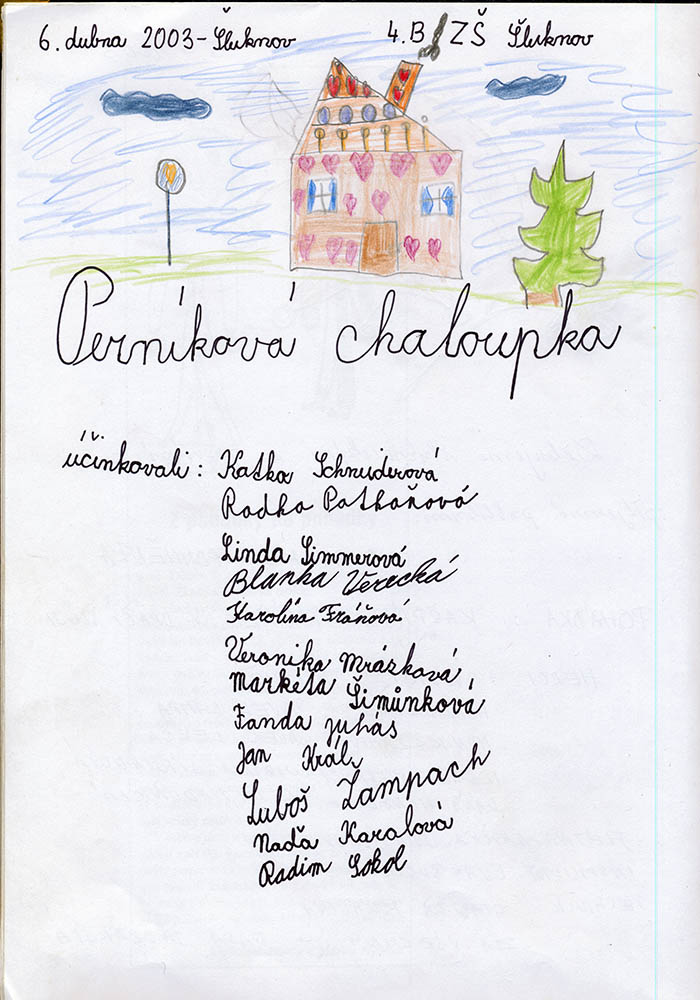 6. dubna 2003 - Šluknov 4. B ZŠ Šluknov
Perníková chaloupka
účinkovali: Katka Schnuderová
Radka Patkaňová
Linda Simmerová
Blanka Verecká
Karolína Fráňová
Veronika Mrázková
Markéta Šimůnková
Fanda Juhás
Jan Král
Luboš Žampach
Naďa Karalová
Radim Sokol